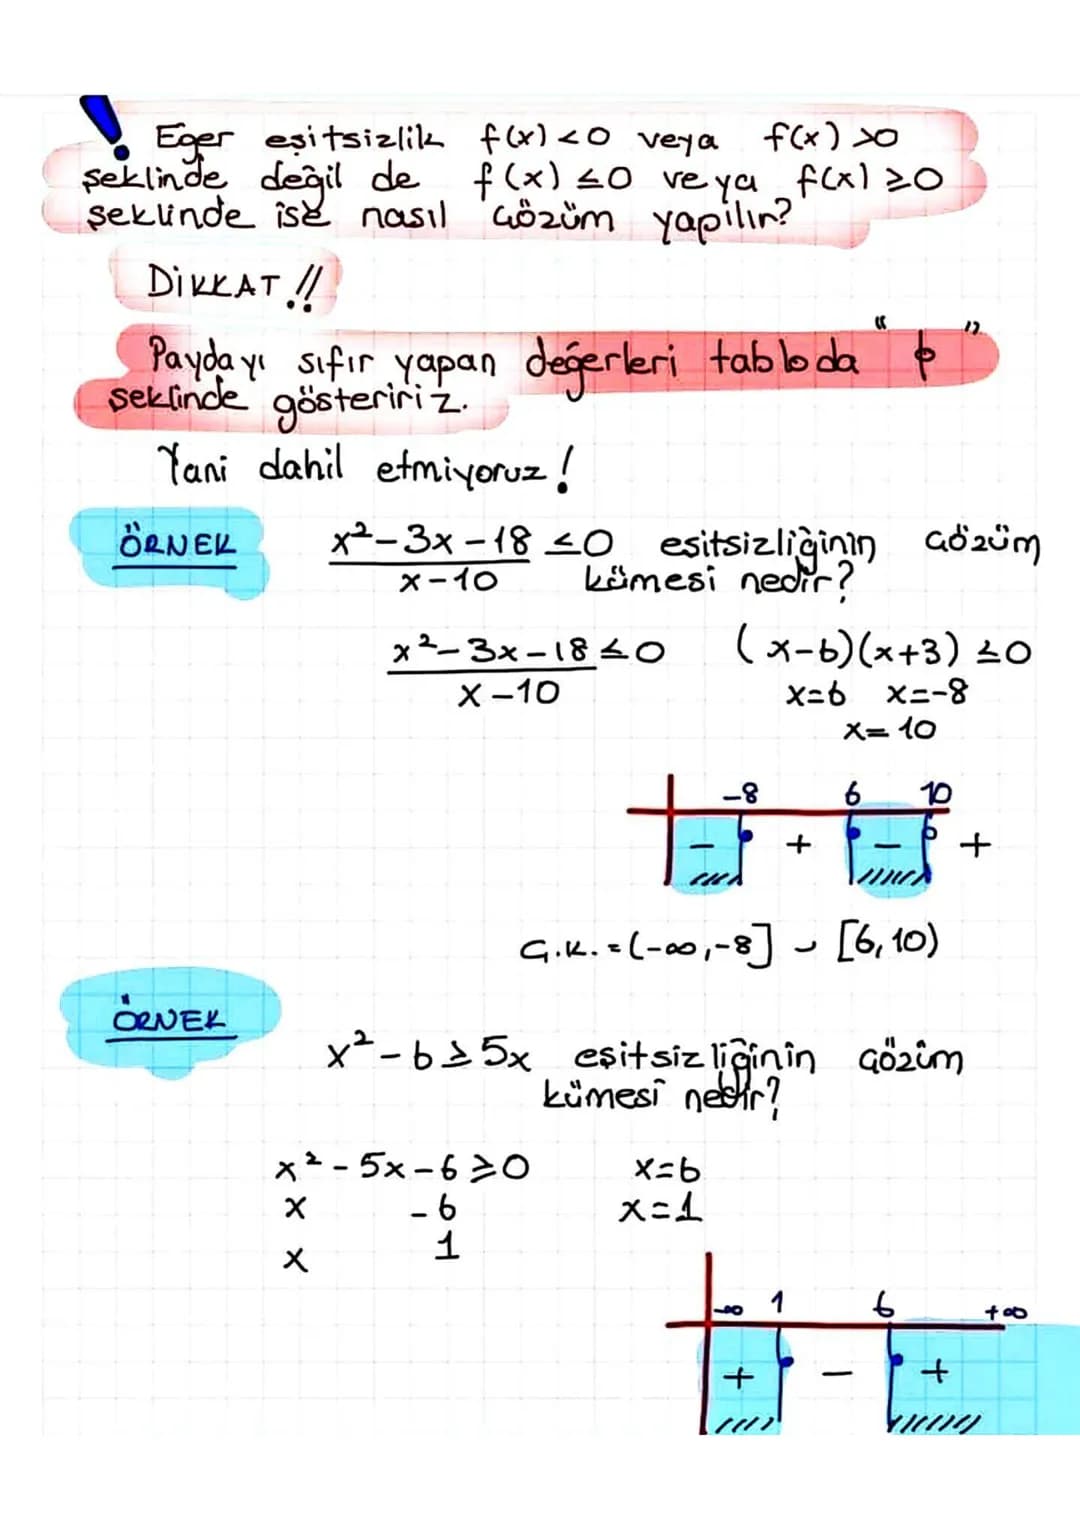 Eğer eşitsizlik f(x) <0 veya f(x) >0
şeklinde değil de f(x) ≤0 veya f(x) ≥0
şeklinde ise nasıl çözüm yapılır?
DİKKAT !!
Paydayı sıfır yapan değerleri tabloda " "
şeklinde gösteririz.
Yani dahil etmiyoruz!
ÖRNEK
x²-3x-18 ≤0 eşitsizliğinin çözüm
x-10 kümesi nedir?
x²-3x-18 ≤0 (x-6)(x+3) ≤0
x-10 x=6 x=-8
x=10
-8 6 10
- + - +
Ç.K.=(-∞,-8] ∪ [6,10)
ÖRNEK
x²-6≥5x eşitsizliğinin çözüm
kümesi nedir?
x²-5x-6≥0 x=6
x -6 x=1
x 1
-∞ 1 6 +∞
+ - +